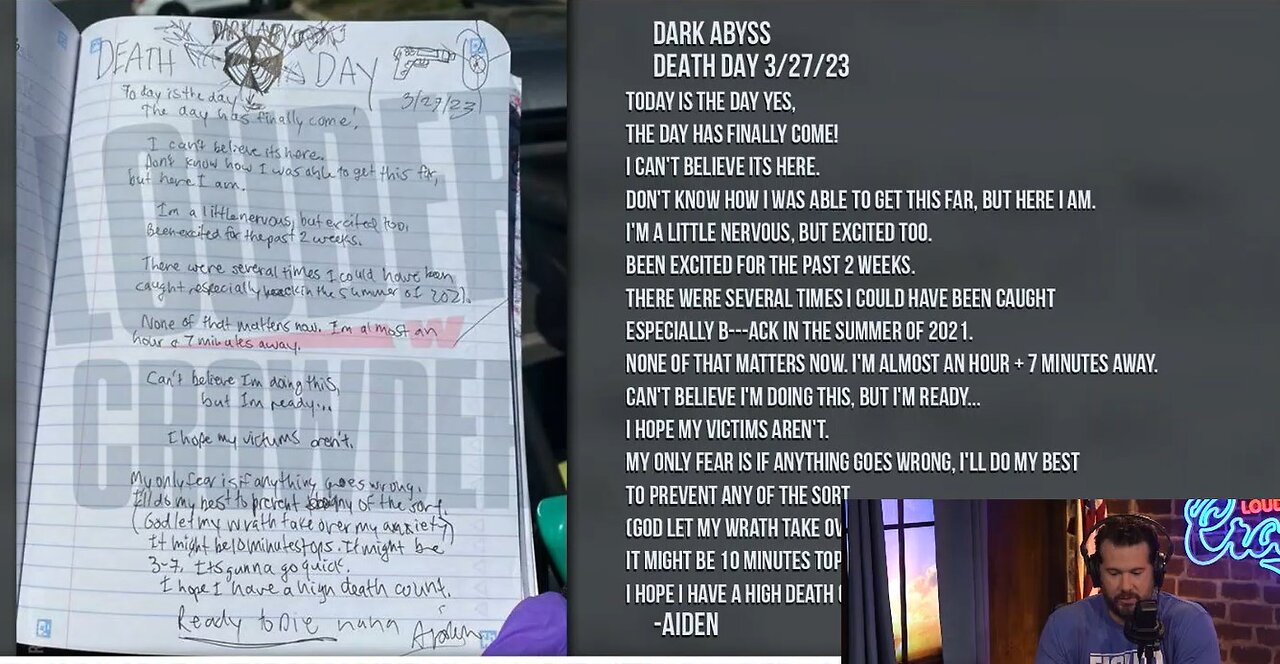 DARK ABYSS
DEATH DAY
3/27/23
Today is the day
The day has finally come!
I can't believe its here.
Don't know how I was able to get this far,
but here I am.
Im a little nervous, but excited too,
Been excited for the past 2 weeks.
There were several times I could have been
caught, especially back in the summer of 2021.
None of that matters now. Im almost an
hour & 7 minutes away.
Can't believe Im doing this,
but Im ready...
I hope my victims aren't.
My only fear is if anything goes wrong.
I'll do my best to prevent any of the sort.
(God let my wrath take over my anxiety)
It might be 10 minutes tops. It might be
3-7. Its gunna go quick.
I hope I have a high death count.
Ready to Die haha Aiden
LOUDER
W
CROWDER
DARK ABYSS
DEATH DAY 3/27/23
TODAY IS THE DAY YES,
THE DAY HAS FINALLY COME!
I CAN'T BELIEVE ITS HERE.
DON'T KNOW HOW I WAS ABLE TO GET THIS FAR, BUT HERE I AM.
I'M A LITTLE NERVOUS, BUT EXCITED TOO.
BEEN EXCITED FOR THE PAST 2 WEEKS.
THERE WERE SEVERAL TIMES I COULD HAVE BEEN CAUGHT
ESPECIALLY B---ACK IN THE SUMMER OF 2021.
NONE OF THAT MATTERS NOW. I'M ALMOST AN HOUR + 7 MINUTES AWAY.
CAN'T BELIEVE I'M DOING THIS, BUT I'M READY...
I HOPE MY VICTIMS AREN'T.
MY ONLY FEAR IS IF ANYTHING GOES WRONG, I'LL DO MY BEST
TO PREVENT ANY OF THE SORT
(GOD LET MY WRATH TAKE OV
IT MIGHT BE 10 MINUTES TOP
I HOPE I HAVE A HIGH DEATH
-AIDEN
LOUD
Cro